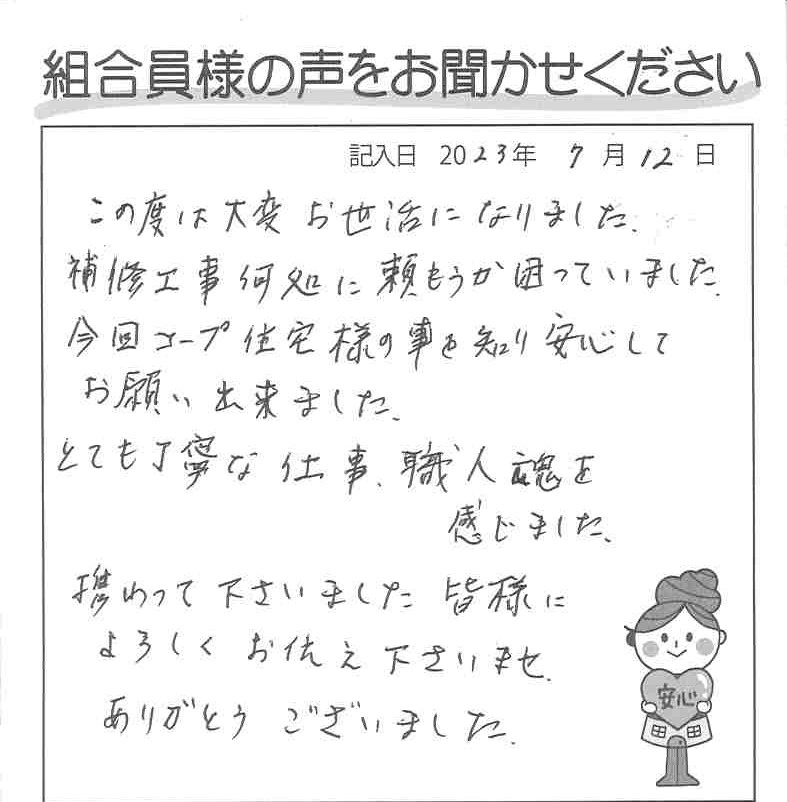 組合員様の声をお聞かせください
記入日 2023年 7月12日
この度は大変お世話になりました、
補修工事何処に頼もうか困っていました、
今回コープ住宅様の事を知り安心して
お願い出来ました、
とても丁寧な仕事、職人魂を
感じました、
携わって下さいました皆様に
よろしくお伝え下さいませ、
ありがとうございました、
安心